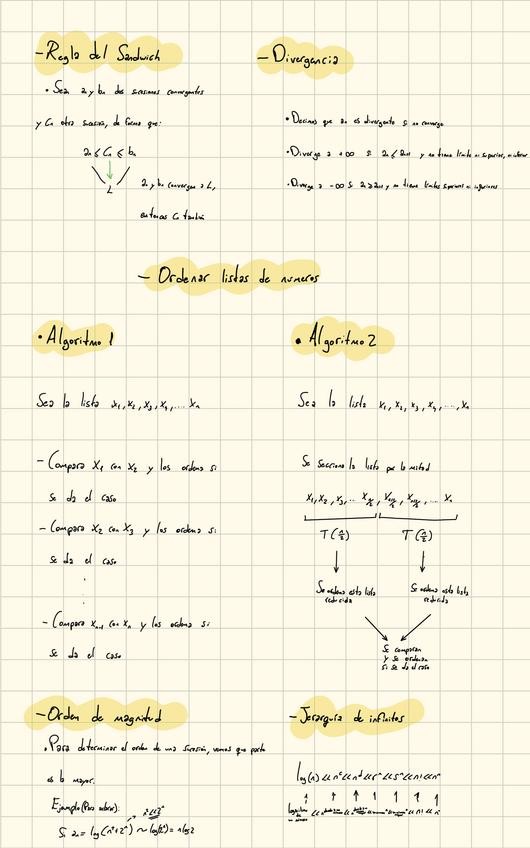 - Regla del Sandwich
• Sea an y bn dos sucesiones convergentes
y Cn otra sucesión, de forma que:
an ≤ Cn ≤ bn
L
an y bn convergen a L,
entonces Cn también
- Divergencia
• Decimos que an es divergente si no converge
• Diverge a +∞ si an ≤ an+1 y no tiene límite ni superior, ni inferior
• Diverge a -∞ si an ≥ an+1 y no tiene límites superiores ni inferiores
- Ordenar listas de numeros
• Algoritmo 1
Sea la lista x1, x2, x3, x4, ... xn
- Compara x1 con x2 y los ordena si
se da el caso
- Compara x2 con x3 y los ordena si
se da el caso
- Compara xn-1 con xn y los ordena si
se da el caso
• Algoritmo 2
Sea la lista x1, x2, x3, x4, ..., xn
Se secciona la lista por la mitad
x1, x2, x3, ... xn/2, ... xn
T(n/2) T(n/2)
Se ordena esta lista Se ordena esta lista
reducida reducida
Se comparan
y se ordenan
si se da el caso
- Orden de magnitud
• Para determinar el orden de una sucesión, vemos que parte
es la mayor.
Ejemplo(Para saber):
Si an = log(n²+2ⁿ) ~ log(2ⁿ) = n log 2
- Jerarquía de infinitos